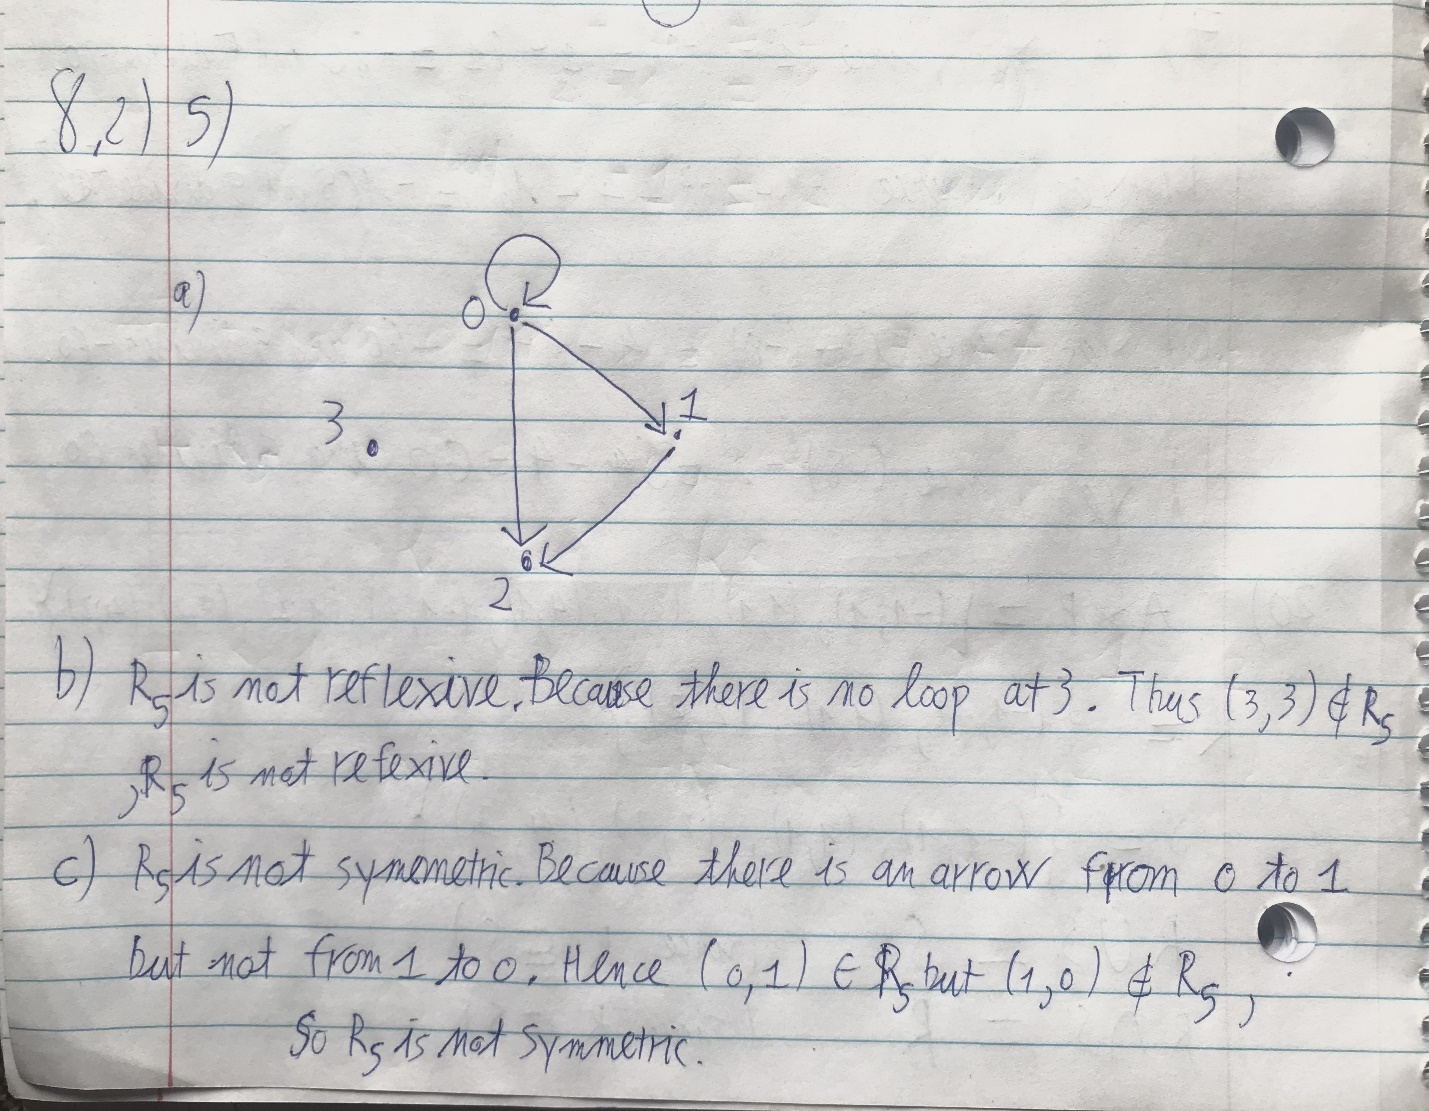 8.2) 5)
a)
0
1
3
2
b) R5 is not reflexive. Because there is no loop at 3. Thus (3,3) ∉ R5
, R5 is not refexive.
c) R5 is not symemetric. Because there is an arrow from 0 to 1
but not from 1 to 0. Hence (0,1) ∈ R5 but (1,0) ∉ R5,
So R5 is not symmetric.